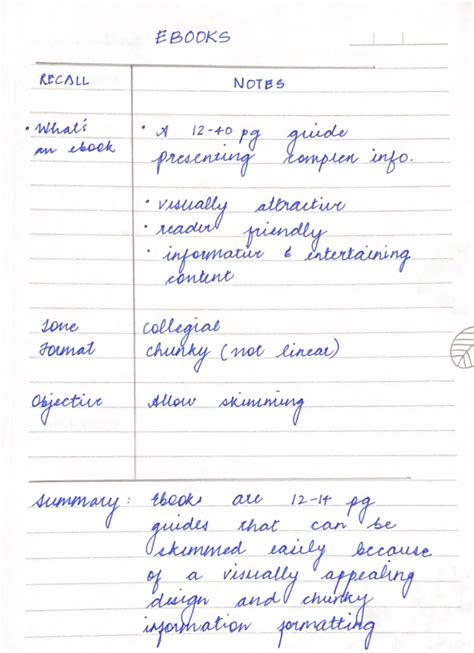 EBOOKS
RECALL NOTES
• What's • A 12-40 pg guide
an ebook presenting complex info.
• visually attractive
• reader friendly
• informative & entertaining
content
Tone collegial
Format chunky (not linear)
Objective Allow skimming
Summary: Ebooks are 12-14 pg
guides that can be
skimmed easily because
of a visually appealing
design and chunky
information formatting